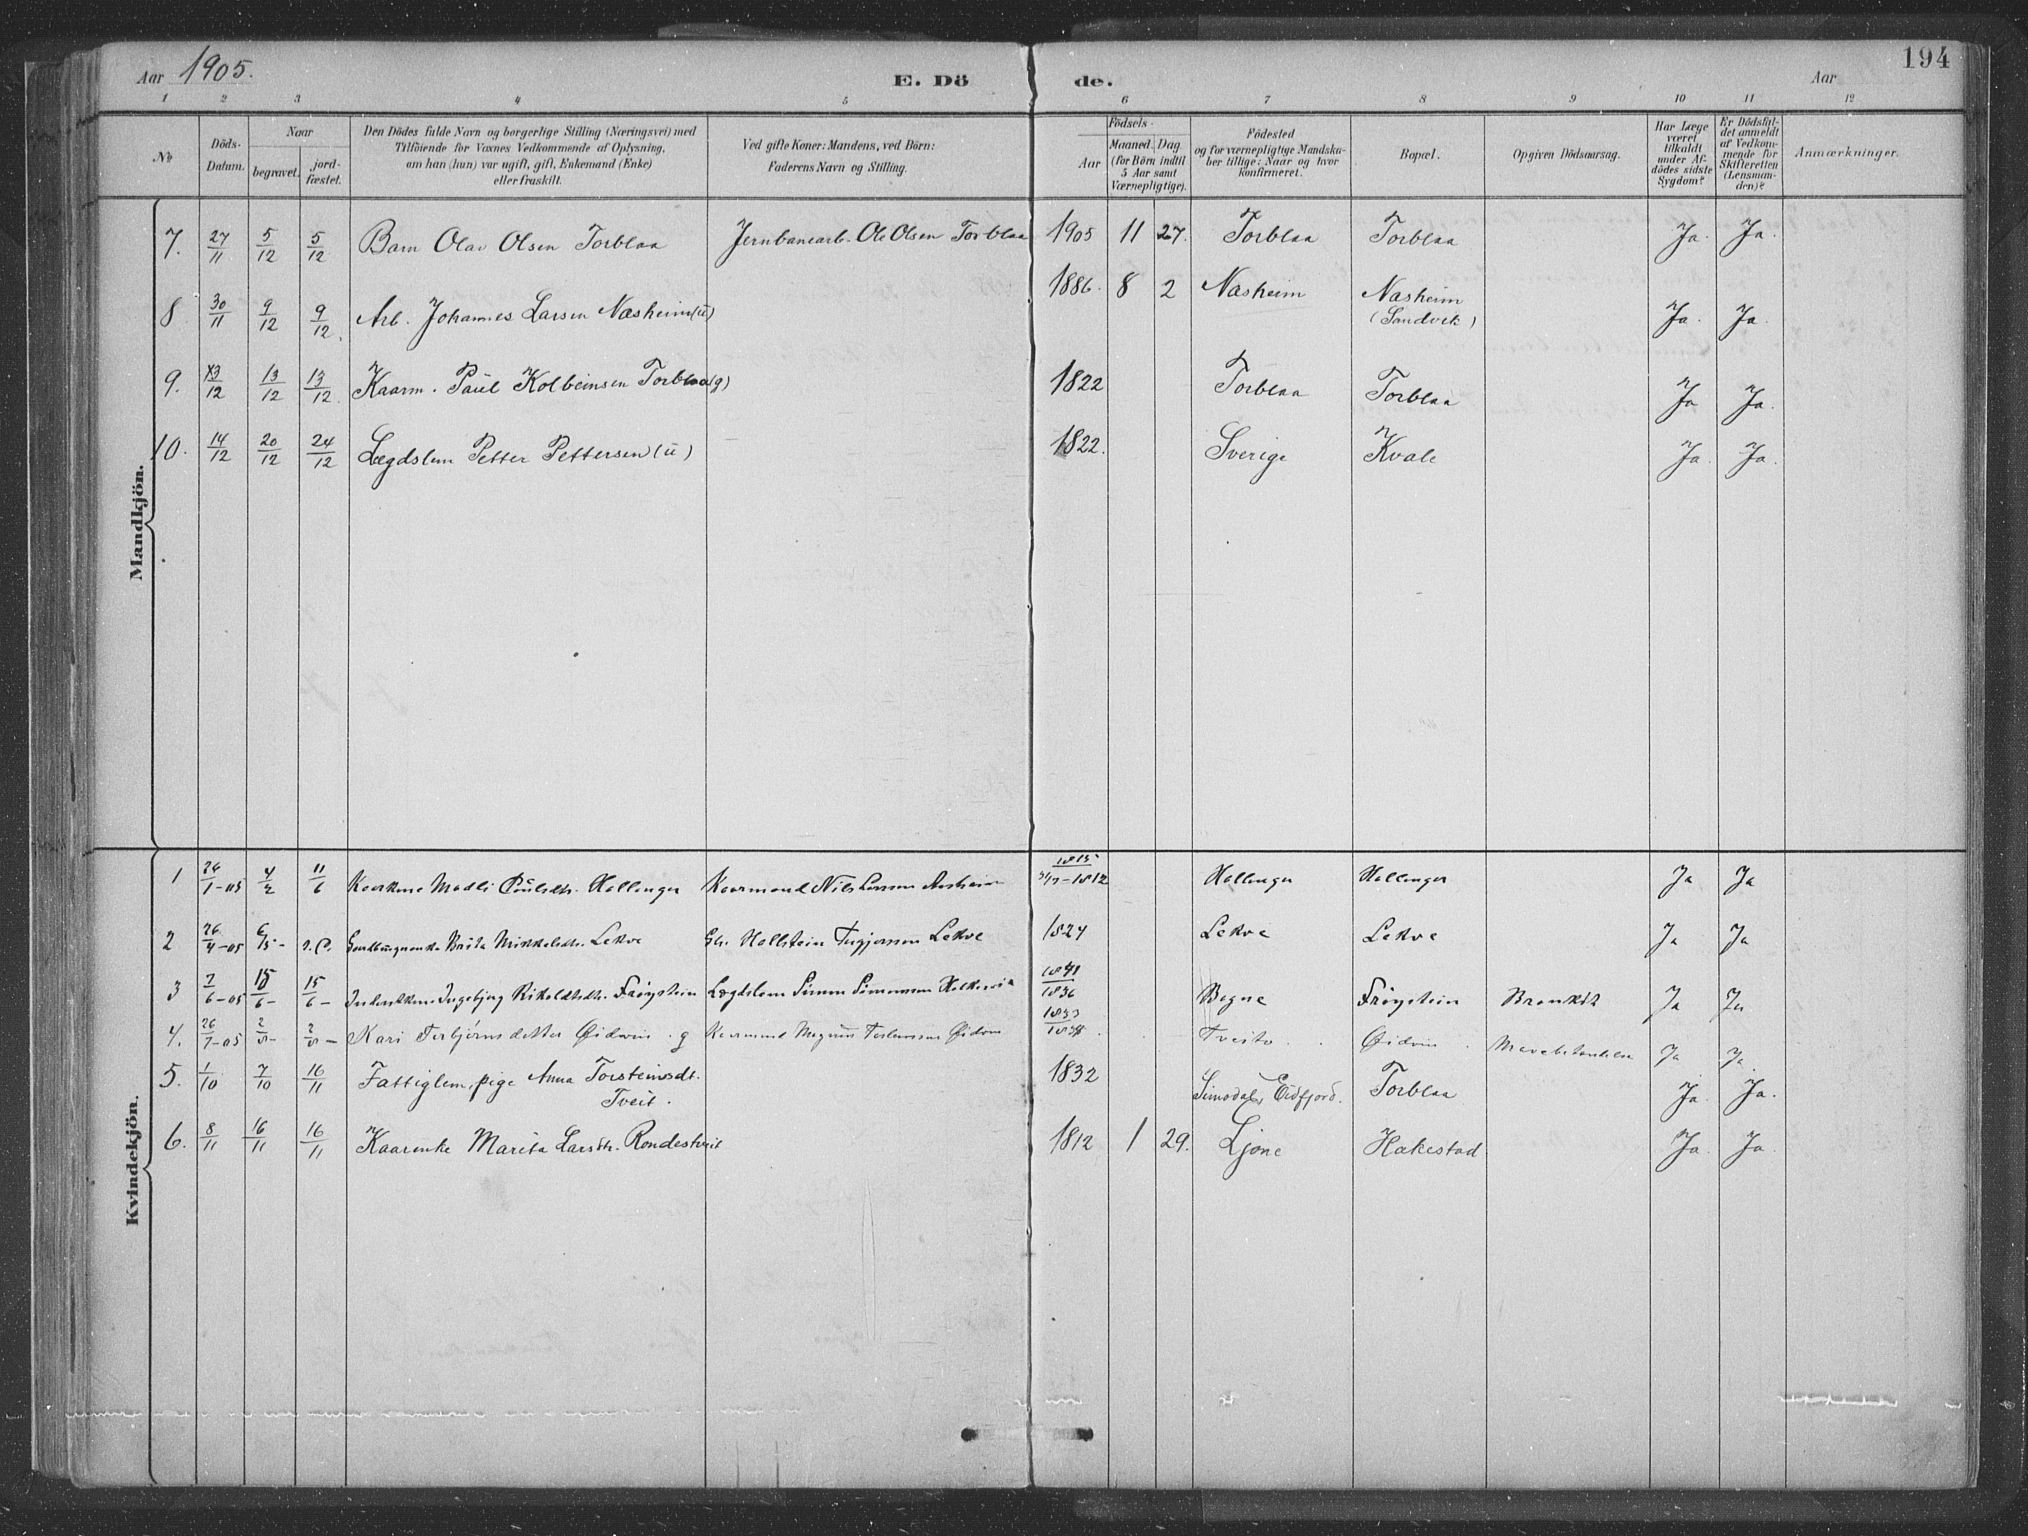 Aar 1905. E. Dö de. Aar 194
1 2 3 4 5 6 7 8 9 10 11 12
№
Döds-Datum.
Naar
begravet.
jord-fæstet.
Den Dödes fulde Navn og borgerlige Stilling (Næringsvei) med
Tilföiende for Voxnes Vedkommende af Oplysning,
om han (hun) var ugift, gift, Enkemand (Enke)
eller fraskilt.
Ved gifte Koner: Mandens, ved Börn:
Faderens Navn og Stilling.
Födsels-
Aar
Maaned. Dag
(for Börn indtil
5 Aar samt
Værnepligtige).
Födested
og for værnepligtige Mandska-
ber tillige: Naar og hvor
konfirmeret.
Bopæl.
Opgiven Dödsaarsag.
Har Læge
været
tilkaldt
under Af-
dödes sidste
Sygdom?
Er Dödsfal-
det anmeldt
af Vedkom-
mende for
Skifteretten
(Lensman-
den)?
Anmærkninger.
Mandkjön.
7. 27/11 5/12 5/12 Barn Olav Olsen Torblaa Jernbanearb. Ole Olsen Torblaa 1905 11 27. Torblaa Torblaa Ja. Ja.
8 30/11 9/12 9/12. Arb. Johannes Larsen Næsheim (u) 1886. 8 2 Næsheim Næsheim (Sandvik) Ja. Ja.
9. 13/12 13/12. Kaarm. Paul Kolbeinsen Torblaa (g) 1822 Torblaa Torblaa Ja Ja.
10. 14/12 20/12 24/12 Lægdslem Petter Pettersen (u) 1822. Sverige Kvale Ja. Ja.
Kvindekjön.
1 26/1-05 4/2 11/6 Madli Hallanger Kaarmand Nils Larsen 1812 Hallanger Hallanger Ja Ja
2 26/4-05 Brita Mikkelsdtr. Lekve Lekve 1824 Lekve Lekve Ja Ja
3 15/6- 15/6- Frøystein Lægdslem Simon Simonsen 1836 Frøystein Ja Ja
4. Kari Torbjørnsdatter Øidvin. g Kaarmand Magnus Øidvin Tveito. Øidvin. Ja Ja.
5. 1/10 7/10 16/11 Fattiglem, pige Anna Torsteinsdt.
Tveit. 1832 Simodal, Eidfjord. Torblaa Ja. Ja.
6. 8/11 16/11 16/11 Kaarenke Marita Larsdtr. Rondestveit 1812 1 29. Ljone Hakestad. Ja. Ja.